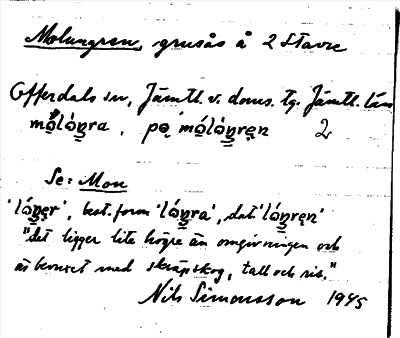 Molungren, grusås å 2 Stavre
Offerdals sn, Jämtl. v. doms. tg. Jämtl. län
mo̱lóŋra, pǫ mo̱lóŋręn 2
Se: Mon
'lóŋęr', best. form 'lóŋra', dat 'lóŋręn'
"det ligger lite högre än omgivningen och
är bevuxet med skräpskog, tall och ris."
Nils Simonsson 1945